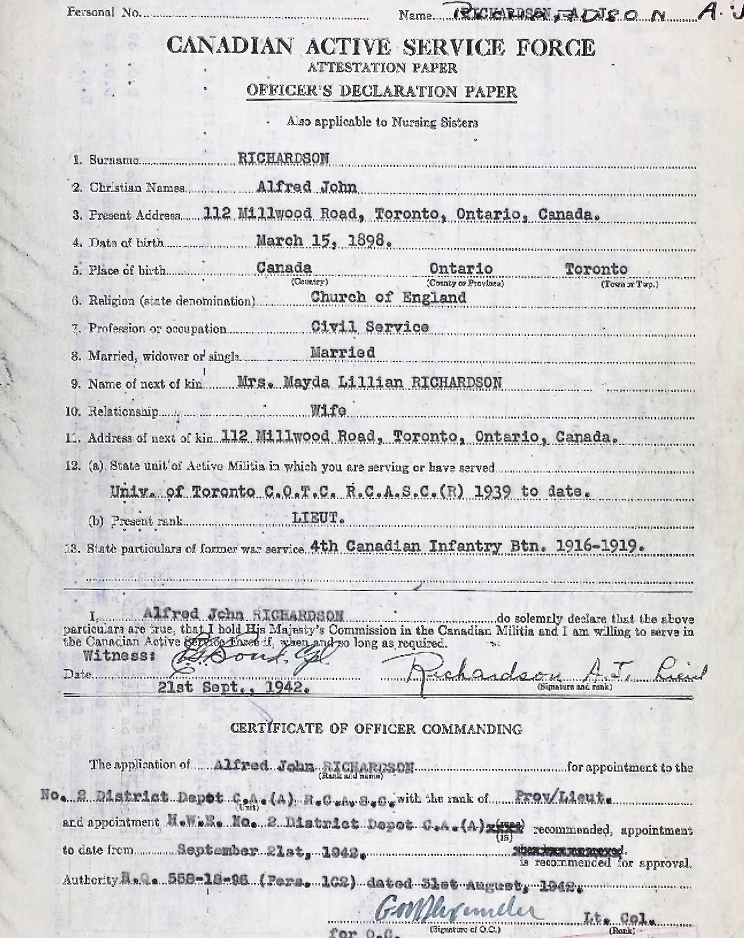 Personal No. Name. RICHARDSON A. J
CANADIAN ACTIVE SERVICE FORCE
ATTESTATION PAPER
OFFICER'S DECLARATION PAPER
Also applicable to Nursing Sisters
1. Surname RICHARDSON
2. Christian Names Alfred John
3. Present Address 112 Millwood Road, Toronto, Ontario, Canada.
4. Date of birth March 15, 1898.
5. Place of birth Canada Ontario Toronto
(Country) (County or Province) (Town or Twp.)
6. Religion (state denomination) Church of England
7. Profession or occupation Civil Service
8. Married, widower or single Married
9. Name of next of kin Mrs. Mayda Lillian RICHARDSON
10. Relationship Wife
11. Address of next of kin 112 Millwood Road, Toronto, Ontario, Canada.
12. (a) State unit of Active Militia in which you are serving or have served
Univ. of Toronto C.O.T.C. R.C.A.S.C.(R) 1939 to date.
(b) Present rank LIEUT.
13. State particulars of former war service 4th Canadian Infantry Btn. 1916-1919.
I, Alfred John RICHARDSON do solemnly declare that the above
particulars are true, that I hold His Majesty's Commission in the Canadian Militia and I am willing to serve in
the Canadian Active Service Force if, when and so long as required.
Witness:
Date Richardson A.J. Lieut
21st Sept., 1942. (Signature and rank)
CERTIFICATE OF OFFICER COMMANDING
The application of Alfred John RICHARDSON for appointment to the
(Rank and name)
No. 2 District Depot C.A.(A) R.C.A.S.C. with the rank of Prov/Lieut.
(Unit)
and appointment H.W.E. No. 2 District Depot C.A.(A) (is) recommended, appointment
to date from September 21st, 1942.
is recommended for approval.
Authority H.Q. 558-18-96 (Pers. 1C2) dated 31st August, 1942.
Lt. Col.
for O.C. (Signature of O.C.) (Rank)